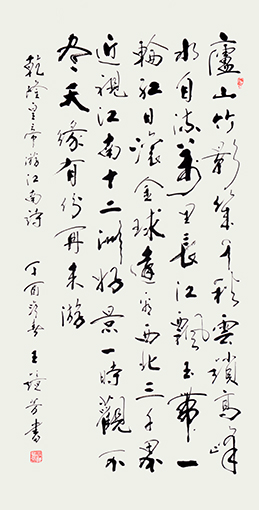 廬山竹影幾千秋雲鎖高峰
水自流萬里長江飄玉帶一
輪紅日滾金球遠看西北三千界
近視江南十二洲好景一時觀不
盡天緣有份再來游
乾隆皇帝游江南詩 丁酉 春 王 芳書